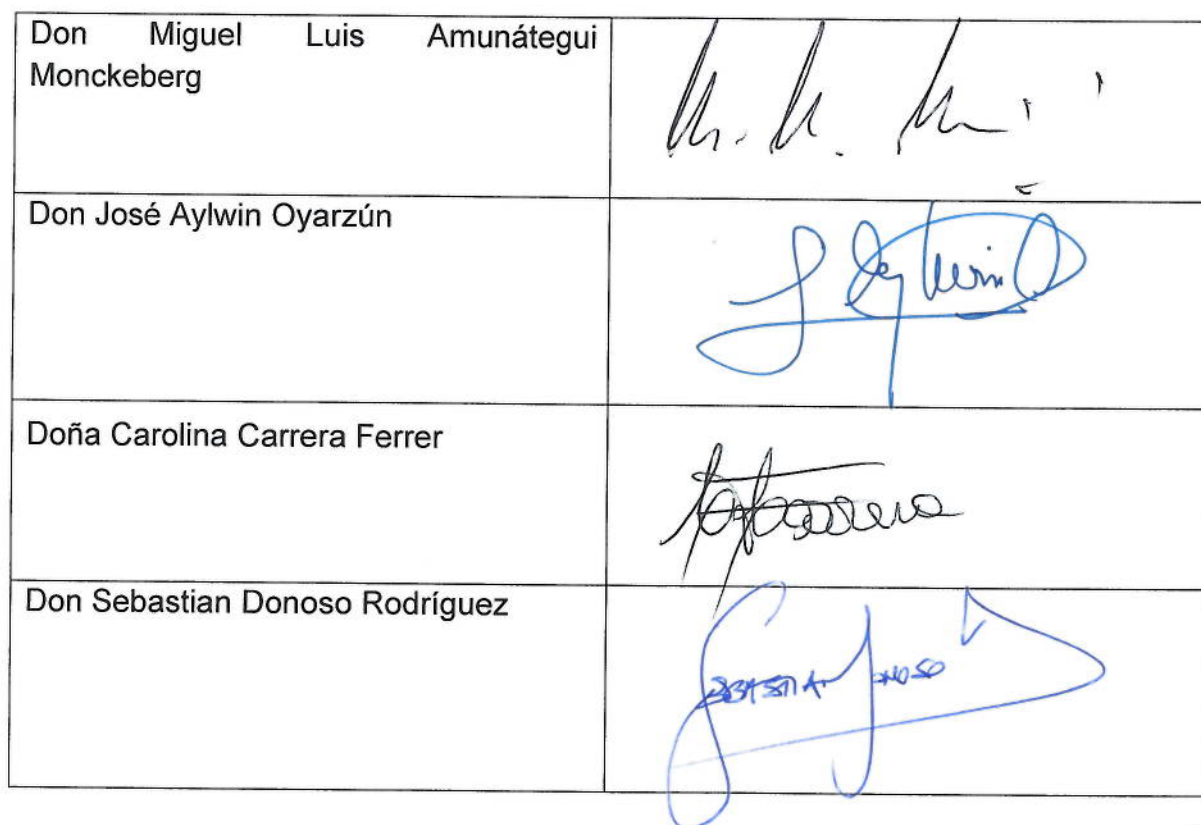 Don Miguel Luis Amunátegui
Monckeberg
Don José Aylwin Oyarzún
J Aylwin
Doña Carolina Carrera Ferrer
Don Sebastian Donoso Rodríguez
SEBASTIAN DONOSO